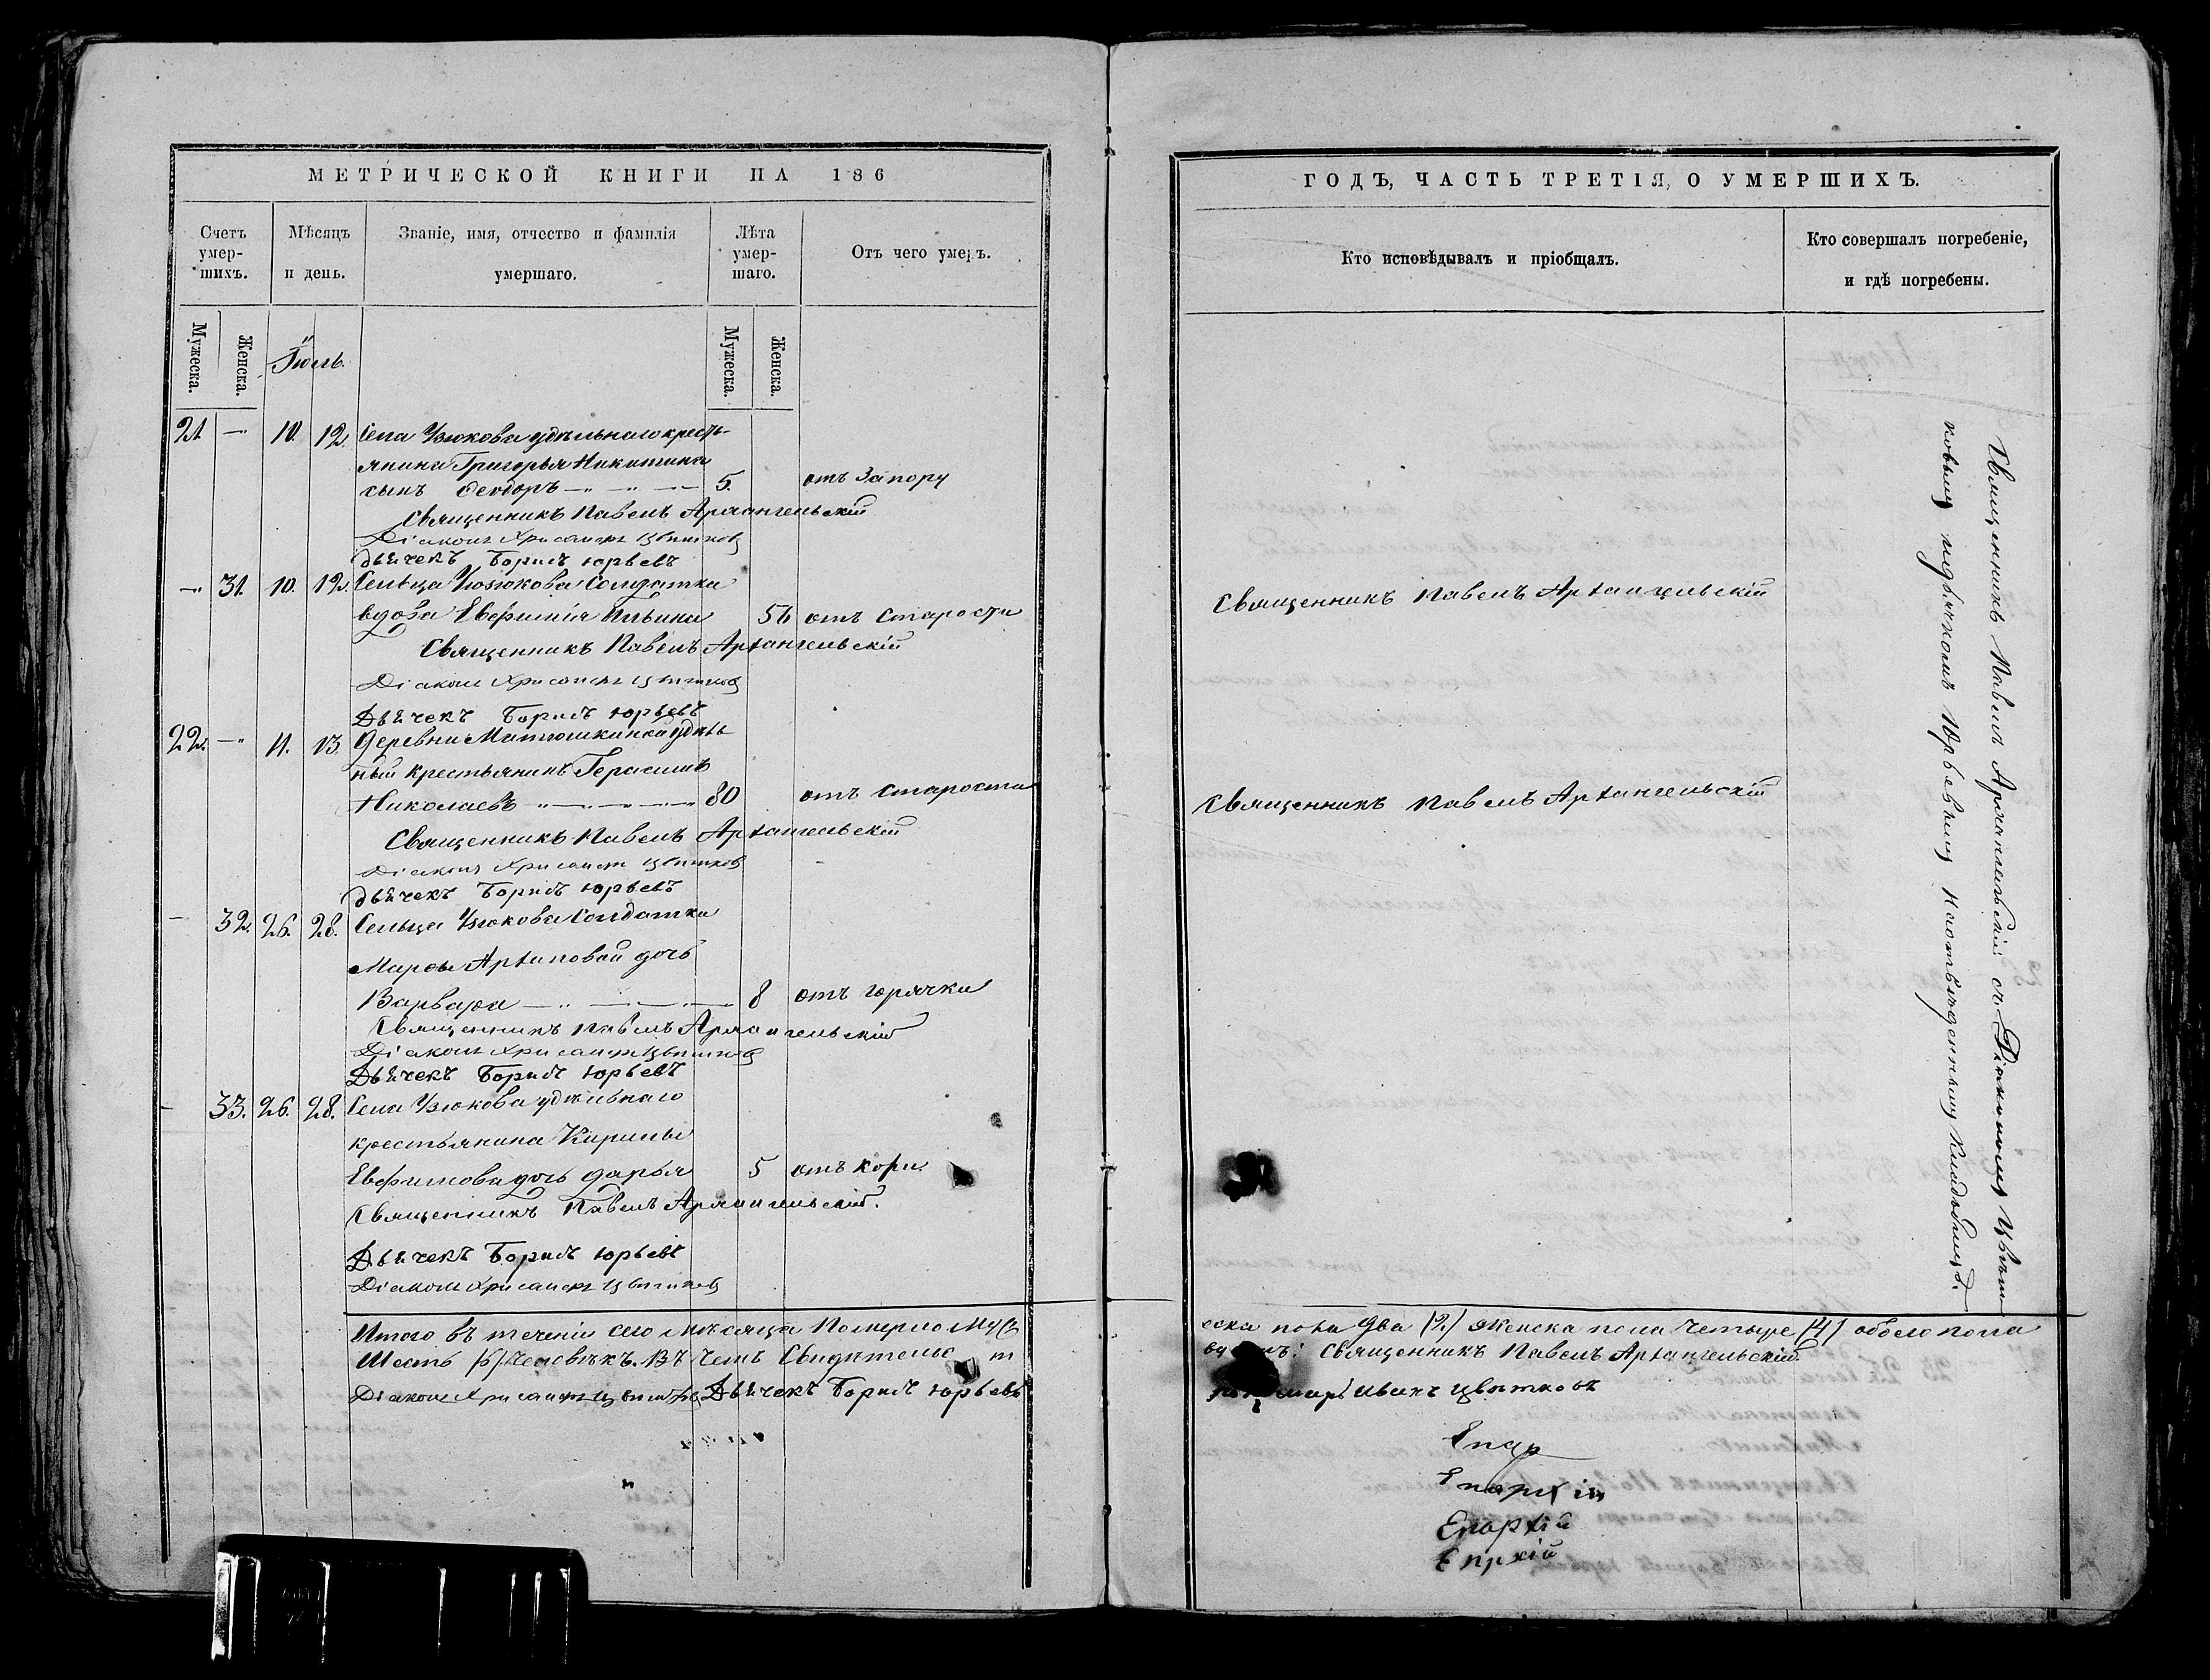 МЕТРИЧЕСКОЙ КНИГИ НА 186
Счетъ умер-шихъ.
Мѣсяцъ и день.
Званіе, имя, отчество и фамилія умершаго.
Лѣта умер-шаго.
Отъ чего умеръ.
Мужеска.
Женска.
Іюль.
Мужеска.
Женска.
21 — 10. 12. Села Узюкова удѣльнаго кресть-
янина Григорья Никитина
сынъ Ѳеодоръ 5. отъ запору
Священникъ Павелъ Архангельскій
Діаконъ Хрисанфъ Цвѣтковъ
Дьячекъ Борисъ Юрьевъ
— 31. 10. 12. Сельца Узюкова Солдатка
вдова Евфимія Ильина 56 отъ старости
Священникъ Павелъ Архангельскій
Діаконъ Хрисанфъ Цвѣтковъ
Дьячекъ Борисъ Юрьевъ
22. — 11. 13 Деревни Матюшкиной удѣль
ный крестьянинъ Герасимъ
Николаевъ 80 отъ старости
Священникъ Павелъ Архангельскій
Діаконъ Хрисанфъ Цвѣтковъ
Дьячекъ Борисъ Юрьевъ
— 32. 26. 28. Сельца Узюкова Солдатки
Марѳы Архиповой дочь
Варвара 8 отъ горячки
Священникъ Павелъ Архангельскій
Діаконъ Хрисанфъ Цвѣтковъ
Дьячекъ Борисъ Юрьевъ
— 33. 26. 28. Села Узюкова удѣльнаго
крестьянина Кирилы
Евфимова дочь Дарья 5 отъ кори
Священникъ Павелъ Архангельскій.
Дьячекъ Борисъ Юрьевъ
Діаконъ Хрисанфъ Цвѣтковъ
Итого въ теченіи сего мѣсяца померло муж
Шесть (6) человѣкъ. Въ чемъ Свидѣтельс т
Діаконъ Хрисанфъ Цвѣтковъ Дьячекъ Борисъ Юрьевъ
ГОДЪ, ЧАСТЬ ТРЕТІЯ, О УМЕРШИХЪ.
Кто исповѣдывалъ и пріобщалъ.
Кто совершалъ погребеніе, и гдѣ погребены.
Священникъ Павелъ Архангельскій
Священникъ Павелъ Архангельскій
Священникъ Павелъ Архангельскій съ Діакономъ Цвѣт
ковымъ и дьячкомъ Юрьевымъ на отведенномъ кладбищѣ.
еска пола два (2.) женска пола четыре (4) обоего пола
Священникъ Павелъ Архангельскій
Иванъ Цвѣтковъ
Епар
Епархіи
Епархій
Епрхій